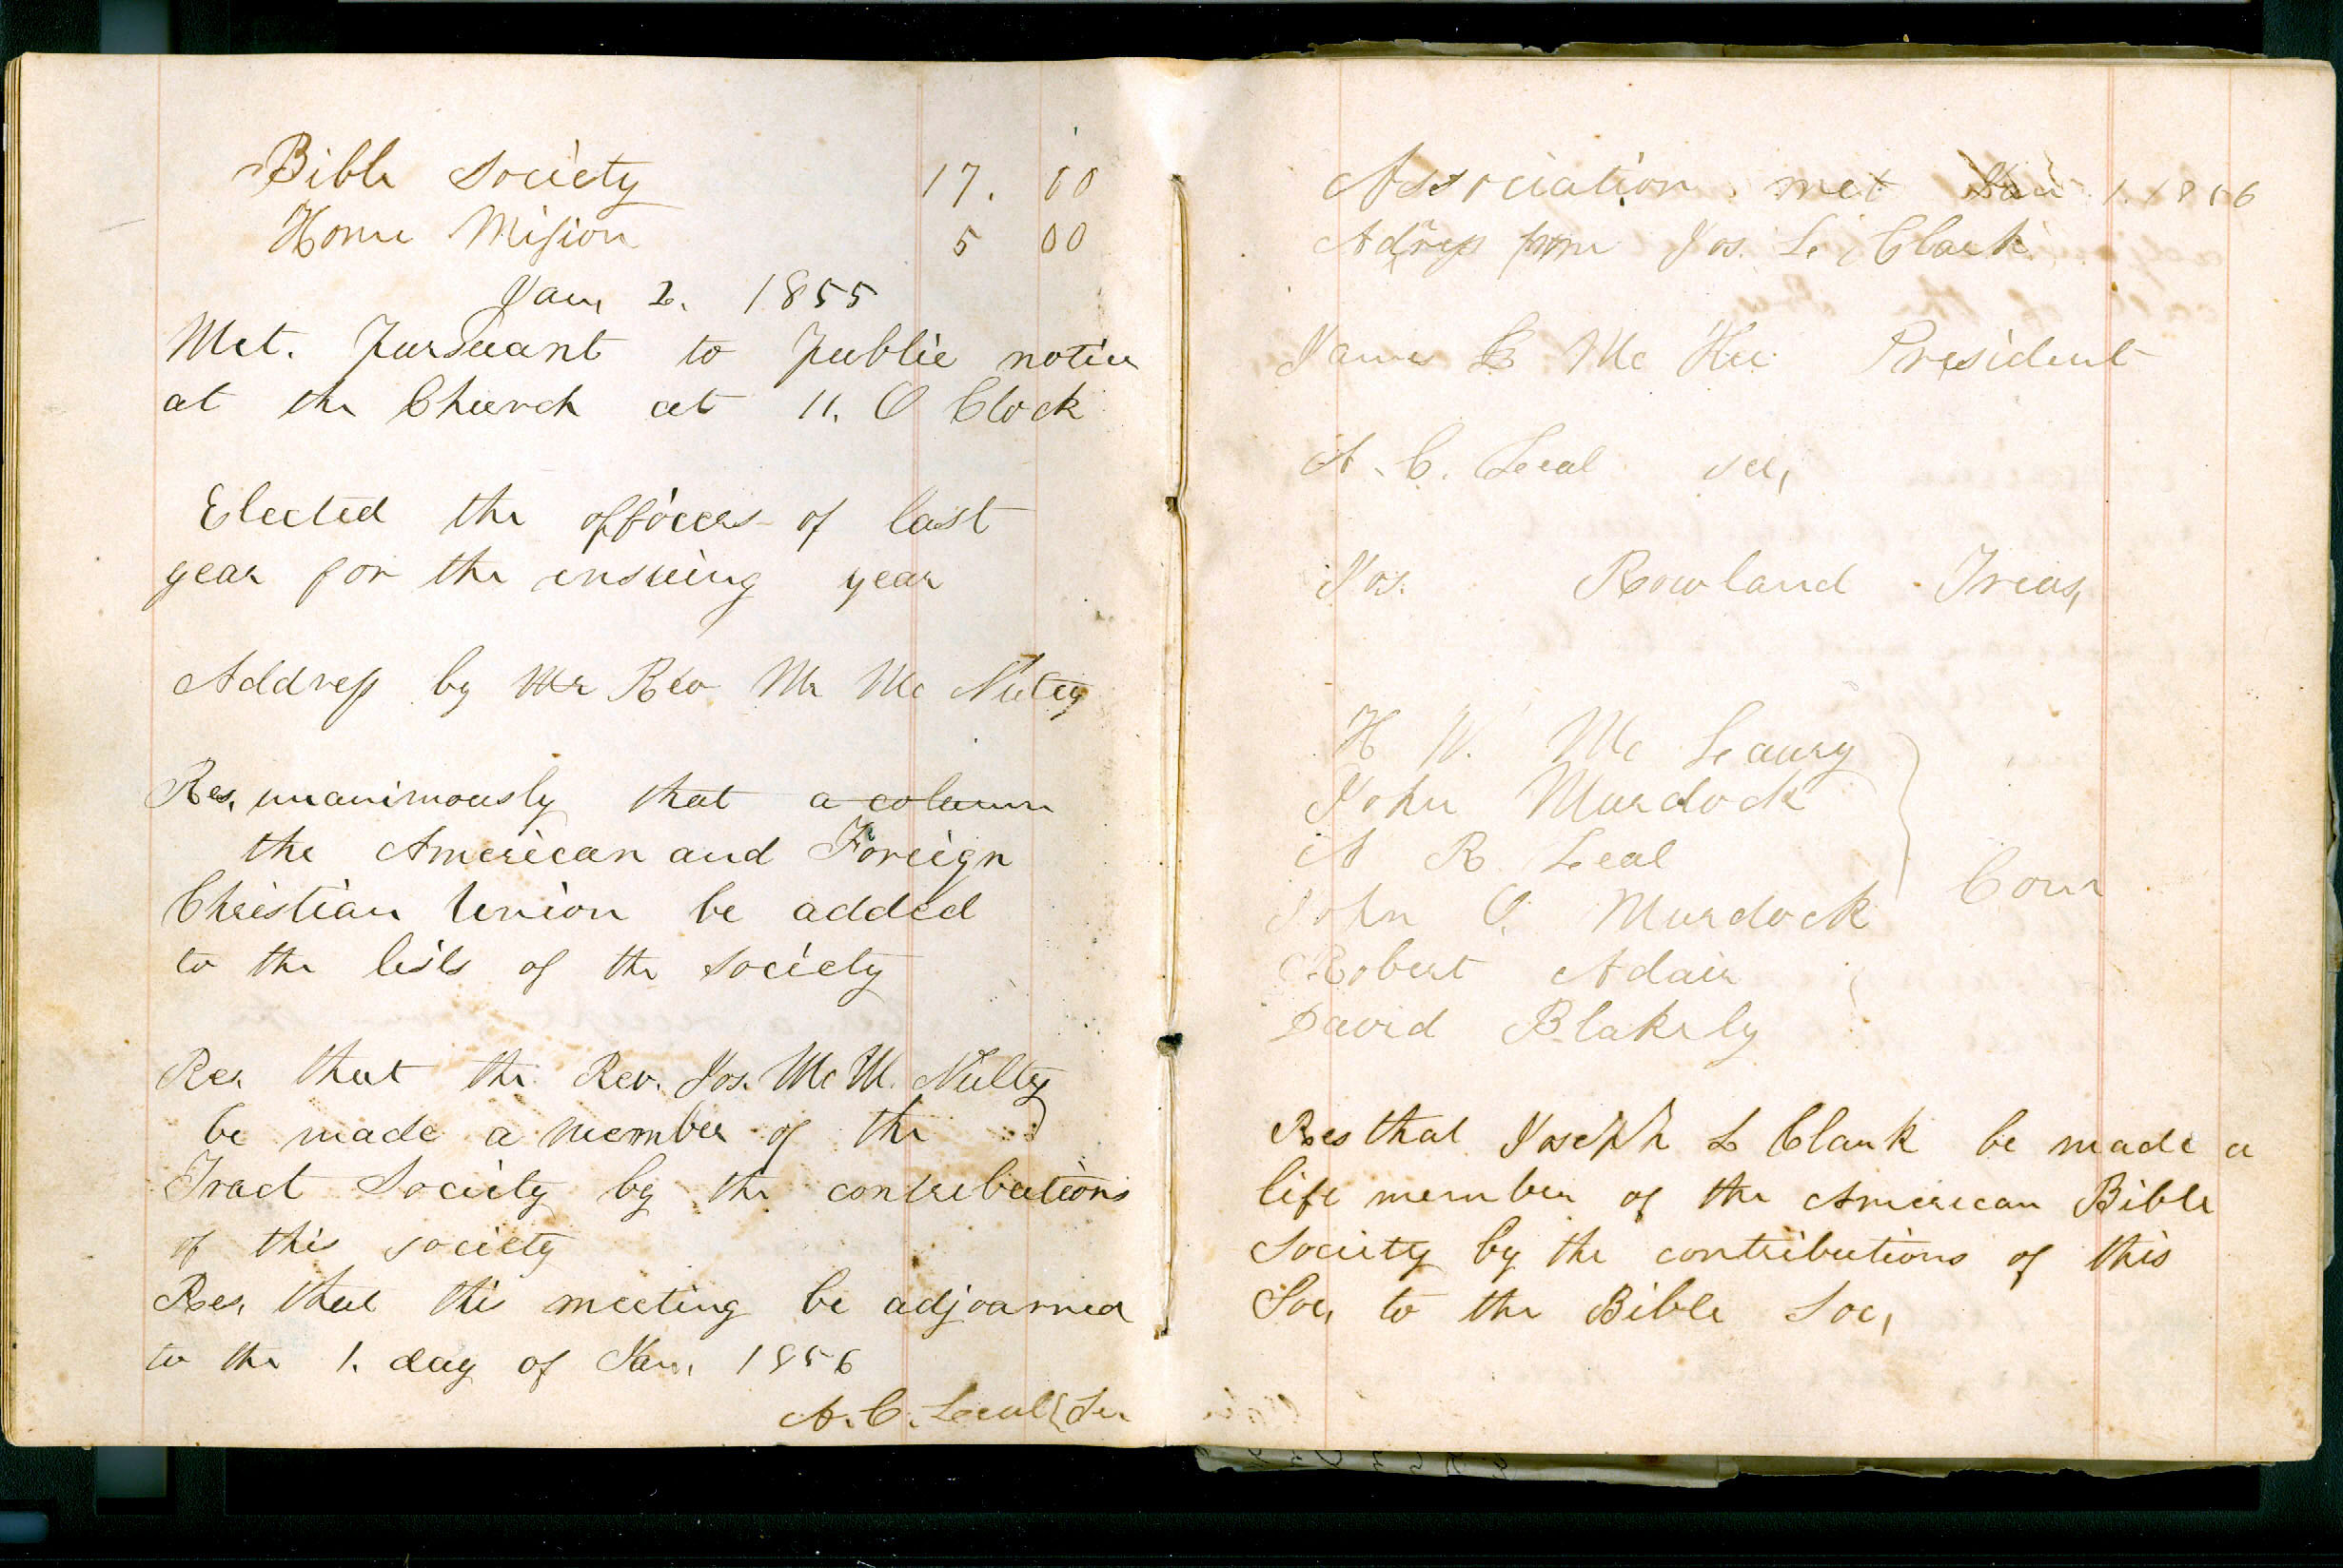 Bible Society 17. 00
Home Mission 5 00
Jan, 2. 1855
Met. Pursuant to public notice
at the Church at 11. O Clock
Elected the officers of last
year for the ensuing year
Address by Mr Rev Mr Mc Nulty
Res, unanimously that a column
the American and Foreign
Christian Union be added
to the lists of the society
Res that the Rev. Jos. Mc M. Nulty
be made a member of the
Tract Society by the contributions
of this society
Res, that this meeting be adjourned
to the 1. day of Jan, 1856
A. C. Leal Sec
Association met Jan 1. 1856
Adress from Jos. L. Clark
James Mc Kee President
A. C. Leal Sec,
Jos. Rowland Treas,
H W. Mc Leaury
John Murdock
A R Leal
John O. Murdock Com
Robert Adair
David Blakely
Res that Joseph L Clark be made a
life member of the American Bible
Society by the contributions of this
Soc, to the Bible Soc,